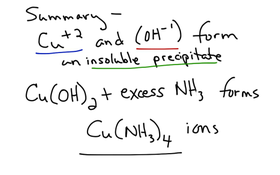 Summary –
Cu⁺² and (OH⁻¹) form
an insoluble precipitate
Cu(OH)₂ + excess NH₃ forms
Cu(NH₃)₄ ions